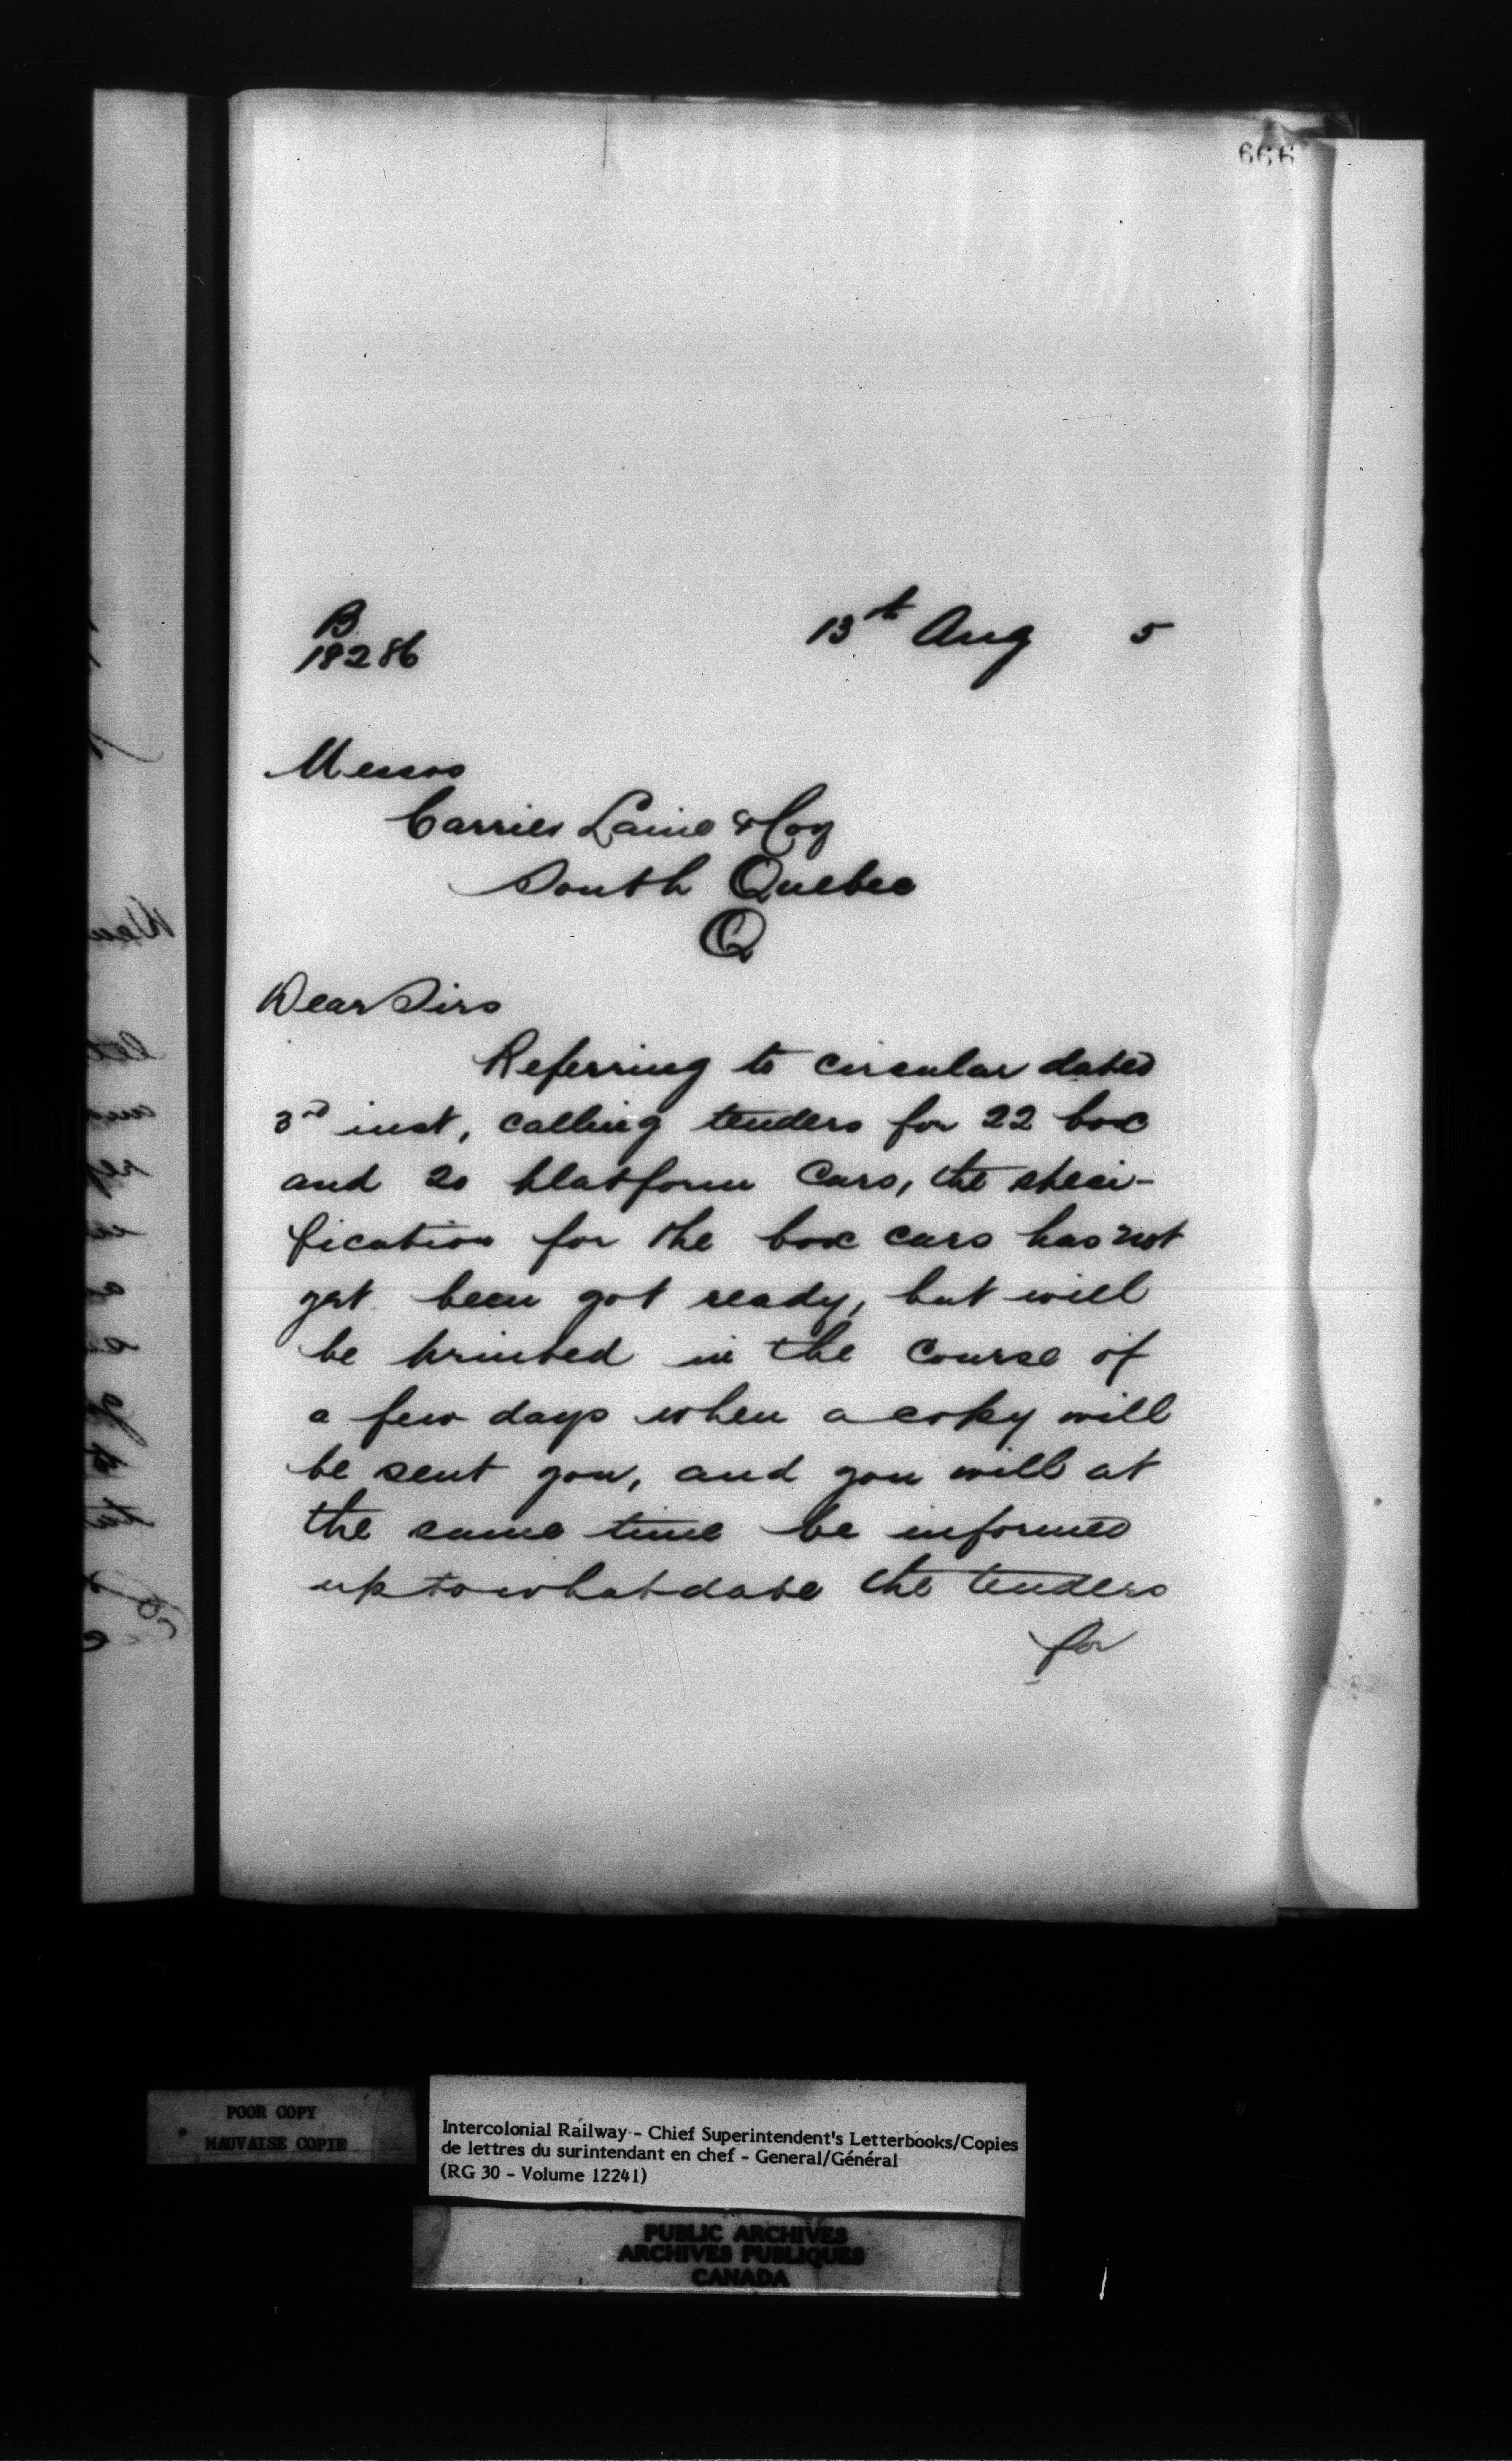 666
B
18286
13th Aug 5
Messrs
Carrier Laine & Coy
South Quebec
Q
Dear Sirs
Referring to circular dated
3rd inst, calling tenders for 22 box
and 20 platform Cars, the speci-
fication for the box cars has not
yet been got ready, but will
be printed in the course of
a few days when a copy will
be sent you, and you will at
the same time be informed
up to what date the tenders
for
POOR COPY
MAUVAISE COPIE
Intercolonial Railway - Chief Superintendent's Letterbooks/Copies
de lettres du surintendant en chef - General/Général
(RG 30 - Volume 12241)
PUBLIC ARCHIVES
ARCHIVES PUBLIQUES
CANADA